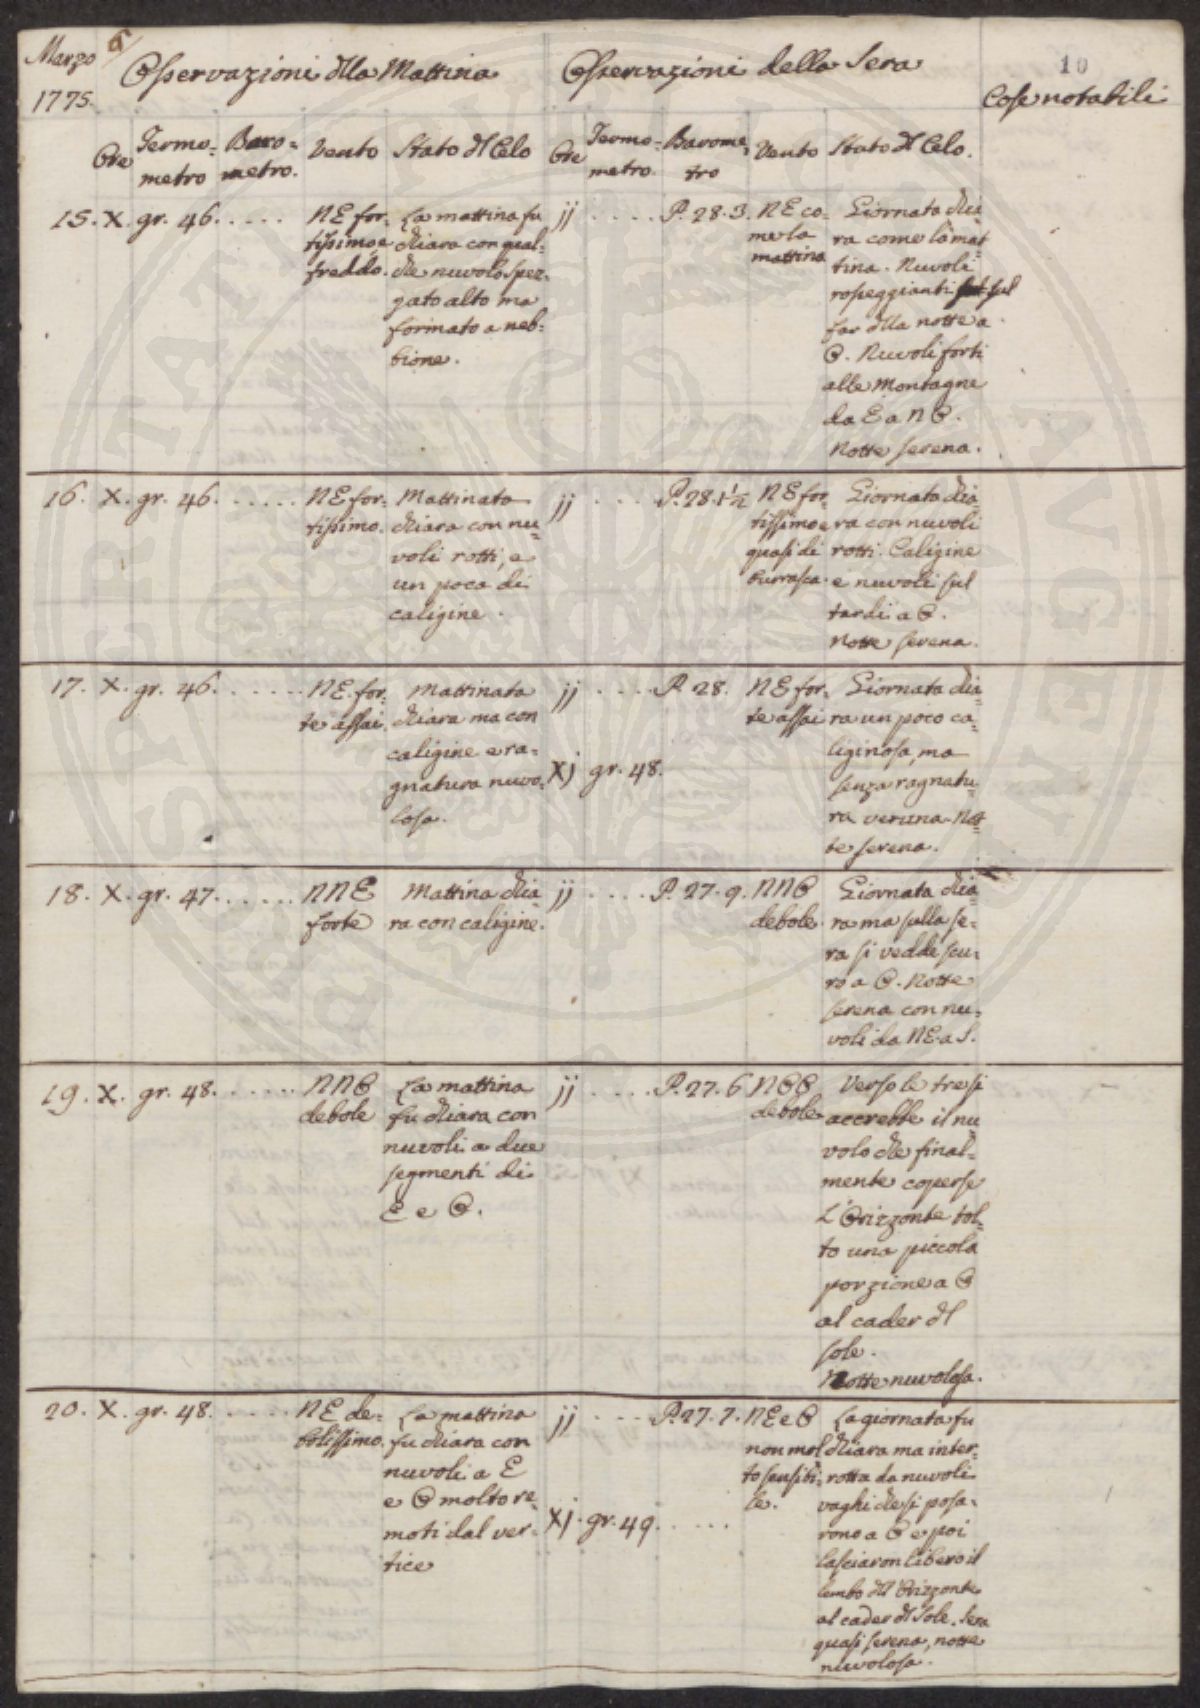 Marzo 6
1775.
Osservazioni dlla Mattina
Osservazioni della Sera
10
Cose notabili
Ore
Termo=
metro
Baro=
metro.
Vento
Stato dl Celo
Ore
Termo=
metro.
Barome=
tro
Vento
Stato dl Celo.
15. X. gr. 46. . . . .
NE for=
tissimo e
freddo.
La mattina fu
chiara con qual=
che nuvolo spez=
zato alto ma
formato a neb=
bione.
jj . . . . P. 28. 3.
NE co=
me la
mattina
Giornata chia=
ra come la mat
tina. Nuvoli
rosseggianti sul
far dlla notte a
O. Nuvoli forti
alle Montagne
da E a N O.
Notte serena.
16. X. gr. 46. . . . . .
NE for=
tissimo.
Mattinata
chiara con nu=
voli rotti, e
un poco di
caligine.
jj . . . . P. 28. 1½
NE for=
tissimo e
quasi di
burrasca.
Giornata chia
ra con nuvoli
rotti. Caligine
e nuvoli sul
tardi a O.
Notte serena.
17. X. gr. 46. . . . . . .
NE. for=
te assai.
Mattinata
chiara ma con
caligine e ra=
gnatura nuvo=
losa.
jj . . . . P. 28.
XJ gr. 48.
NE for=
te assai
Giornata chia=
ra un poco ca=
liginosa, ma
senza ragnatu=
ra veruna. Not=
te serena.
18. X. gr. 47. . . . . . .
NNE
forte
Mattina chia=
ra con caligine.
jj . . . . P. 27. 9.
NNO
debole.
Giornata chia=
ra ma sulla se=
ra si vedde scu=
ro a O. Notte
serena con nu=
voli da NE. a S.
19. X. gr. 48. . . . . . .
NNO
debole
La mattina
fu chiara con
nuvoli a due
segmenti di
E e O.
jj . . . . P. 27. 6
NOO
debole
Verso le tre si
accrebbe il nu=
volo che final=
mente coperse
L'Orizzonte tol=
to una piccola
porzione a O
al cader dl
sole.
Notte nuvolosa.
20. X. gr. 48. . . . .
NE de=
bolissimo.
La mattina
fu chiara con
nuvoli a E
e O molto re=
moti dal ver=
tice
jj . . . P. 27. 7.
XJ. gr. 49. . . . . .
NE e O
non mol
to sensibi=
le.
La giornata fu
chiara ma inter=
rotta da nuvoli
vaghi che si posa=
rono a O e poi
lasciaron libero il
lembo dll'Orizzonte
al cader dl Sole. Sera
quasi serena, notte
nuvolosa.